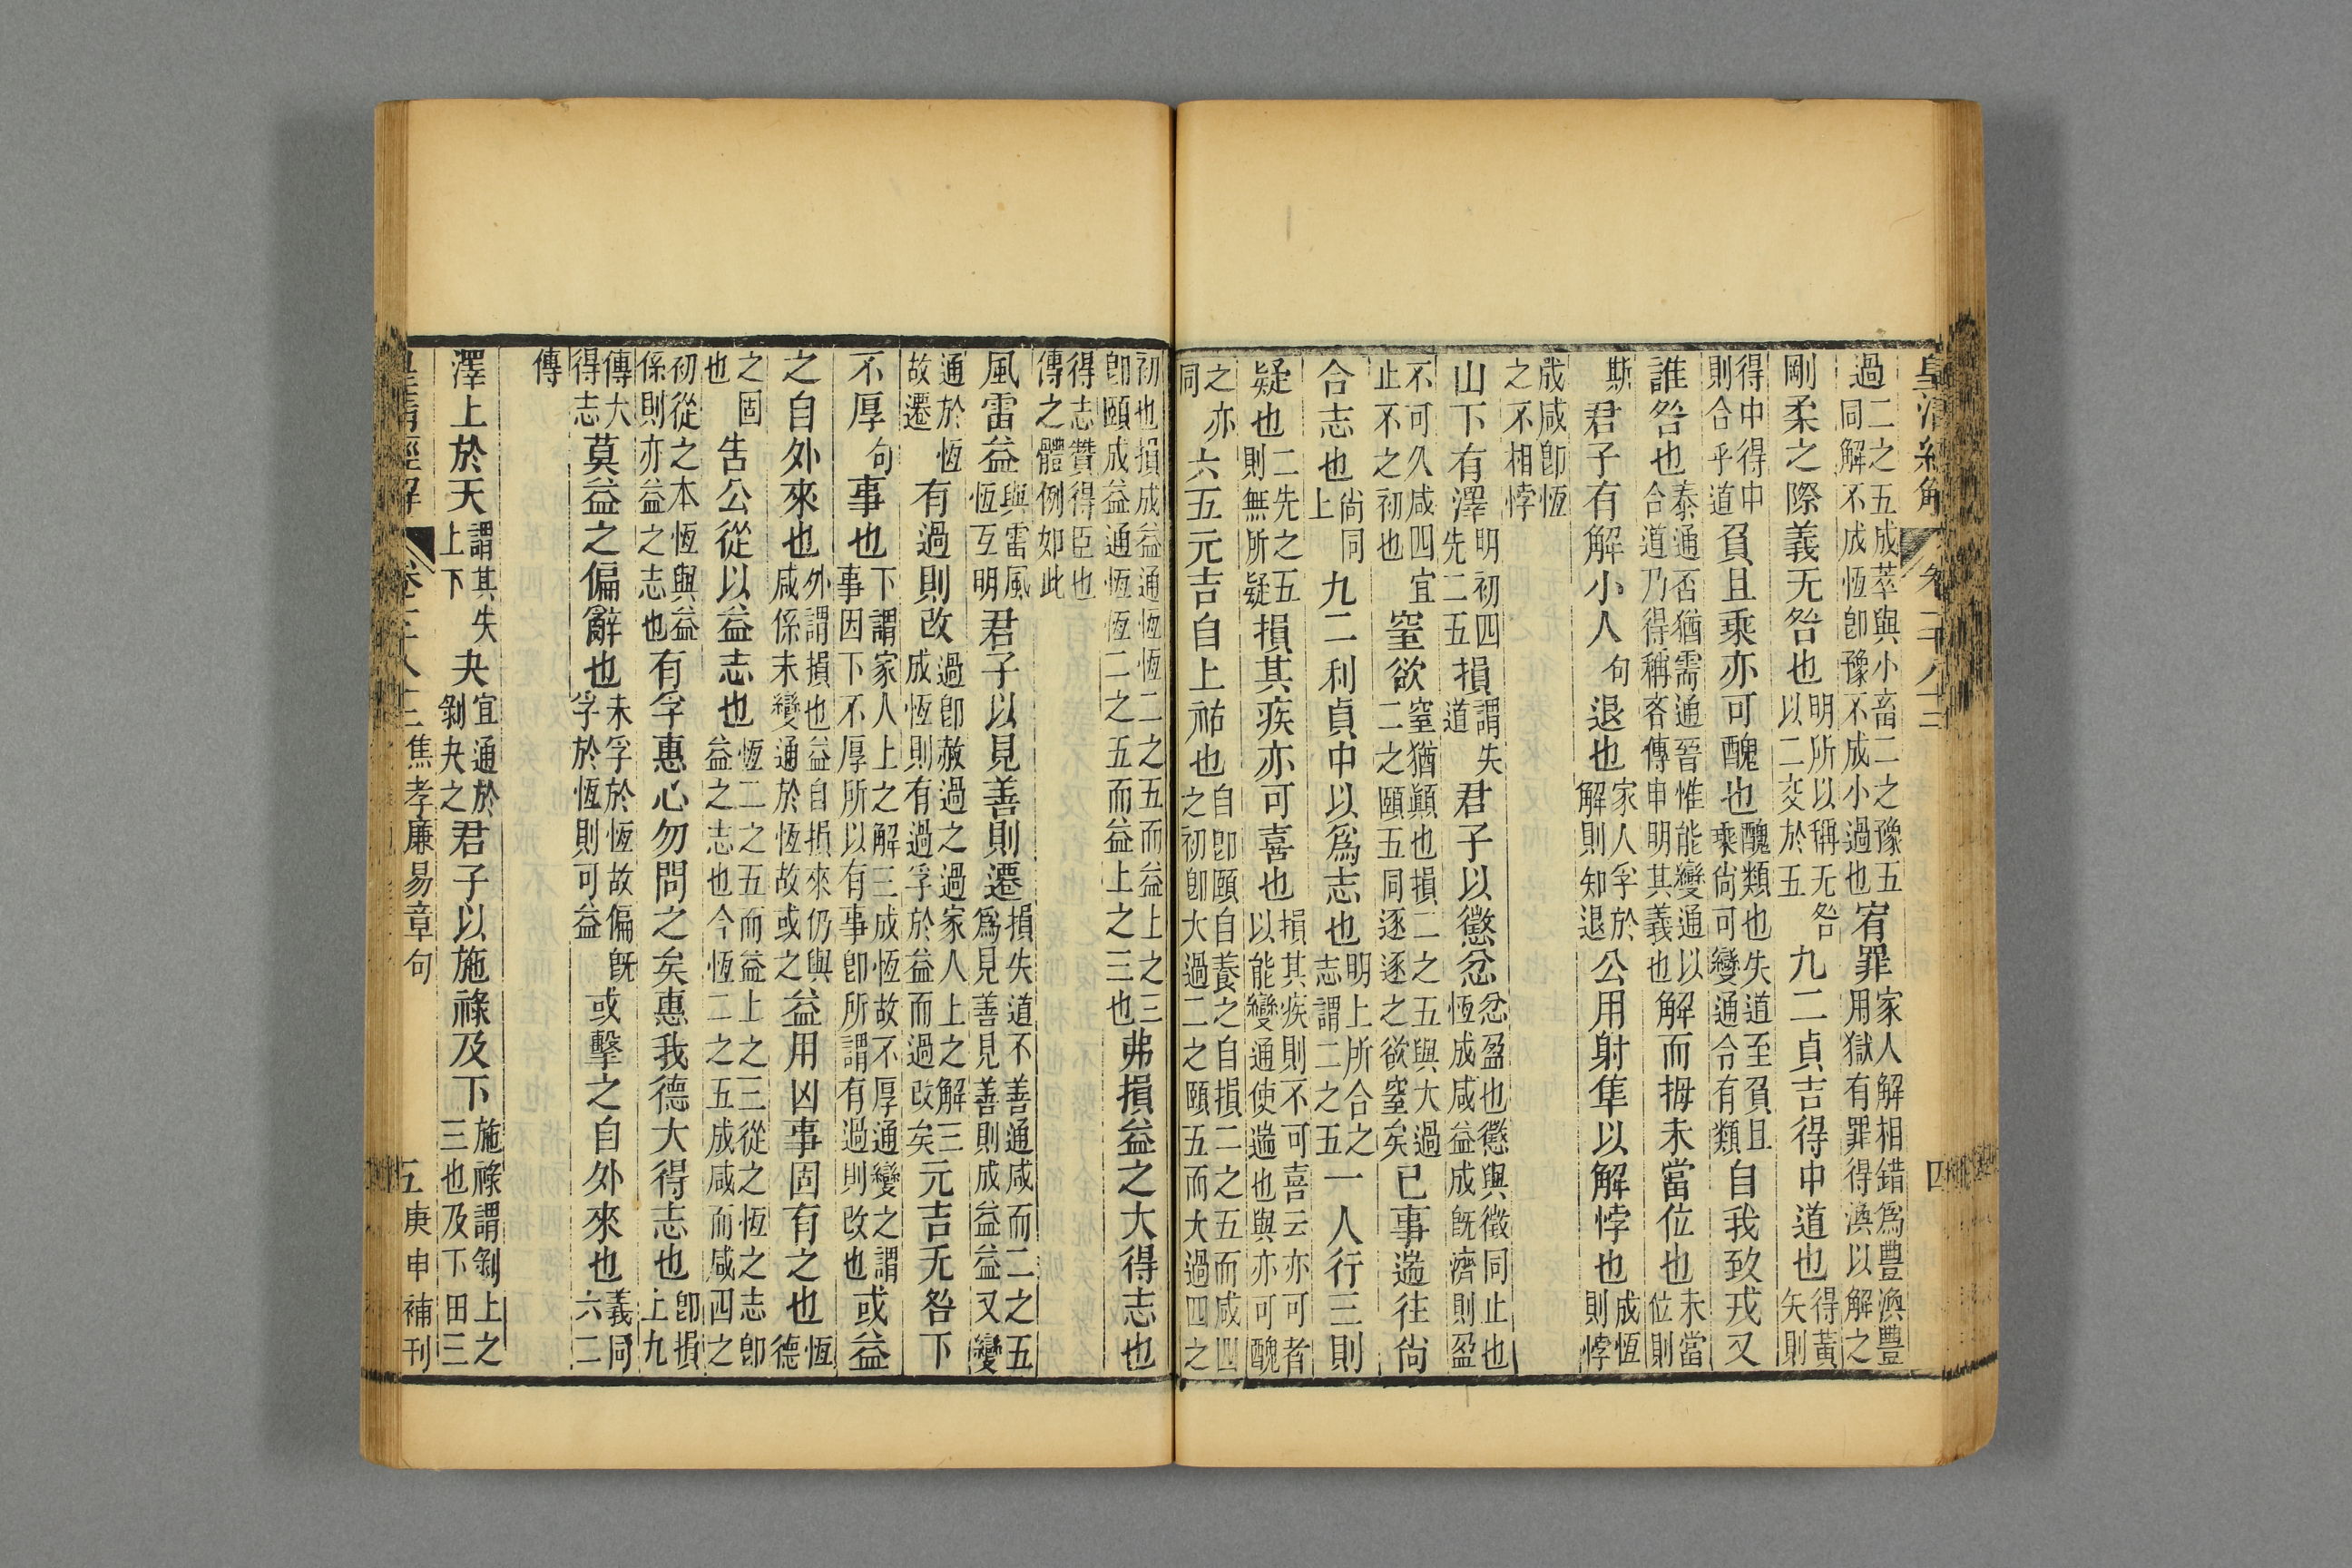 皇清經解
四
過二之五成萃與小畜二之豫五同解不成恆卽豫不成小過也宥罪家人解相錯爲豐渙豐用獄有罪得渙以解之
剛柔之際義无咎也明所以稱无咎以二交於五九二貞吉得中道也得黃矢則
得中得中則合乎道負且乘亦可醜也醜類也失道至負且乘尙可變通令有類自我致戎又
誰咎也泰通否猶需通晉惟能變通以合道乃得稱吝傳申明其義也解而拇未當位也未當位則
斯君子有解小人句退也家人孚於解則知退公用射隼以解悖也成恆則悖
成咸卽恆之不相悖
山下有澤明初四先二五損謂失道君子以懲忿忿盈也懲與徵同止也恆成咸咸益成旣濟則盈
不可久咸四宜止不之初也窒欲窒猶顚也損二之五與大過二之頤五同逐逐之欲窒矣已事遄往尙
合志也尙同上九二利貞中以爲志也明上所合之志謂二之五一人行三則
疑也二先之五則無所疑損其疾亦可喜也損其疾則不可喜云亦可者以能變通使遄也與亦可醜
之亦同六五元吉自上祐也自卽頤自養之自損二之五而咸四之初卽大過二之頤五而大過四之
初也損成益通恆恆二之五而益上之三卽頤成益通恆恆二之五而益上之三也弗損益之大得志也
得志贊得臣也傳之體例如此
風雷益與雷風恆互明君子以見善則遷損失道不善通咸而二之五爲見善見善則成益益又變
通於恆故遷有過則改過卽赦過之過家人上之解三成恆則有過孚於益而過改矣元吉无咎下
不厚句事也下謂家人上之解三成恆故不厚通變之謂事因下不厚所以有事卽所謂有過則改也或益
之自外來也外謂損也益自損來仍與咸係未變通於恆故或之益用凶事固有之也恆德
之固也告公從以益志也恆二之五而益上之三從之恆之志卽益之志也今恆二之五成咸而咸四之
初從之本恆與益係則亦益之志也有孚惠心勿問之矣惠我德大得志也卽損上九
傳大得志莫益之偏辭也未孚於恆故偏旣孚於恆則可益或擊之自外來也義同六二
傳
澤上於天謂其失上下夬宜通於剝夬之君子以施祿及下施祿謂剝上之三也及下田三
皇清經解
焦孝廉易章句
五
庚申補刊